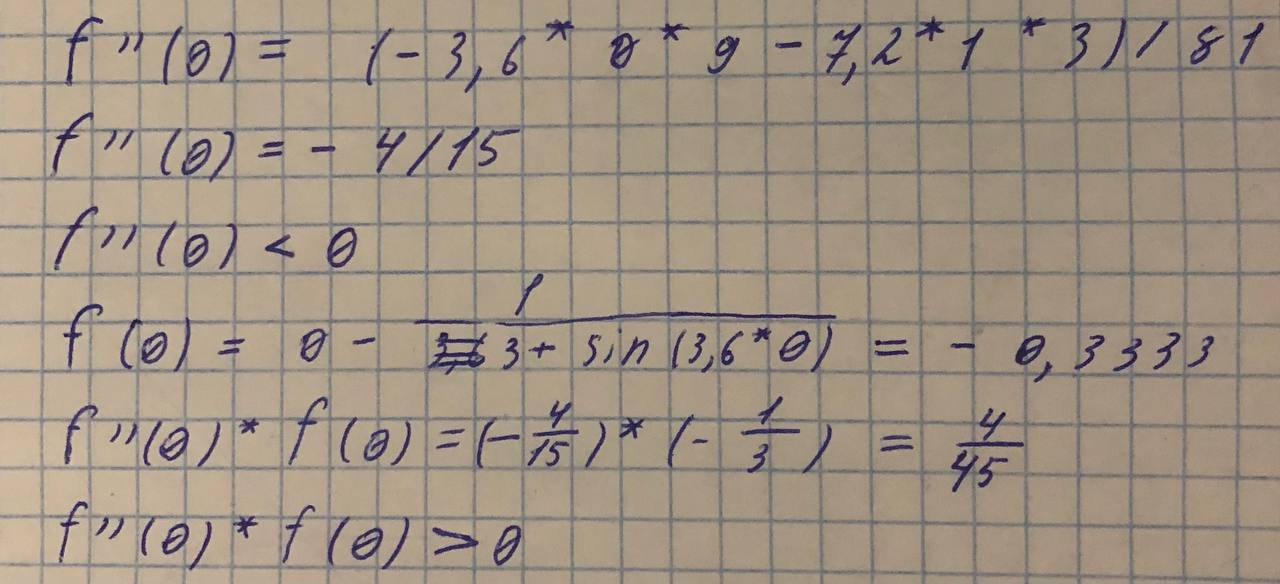 f''(0) = (-3,6 * 0 * 9 - 7,2 * 1 * 3) / 81
f''(0) = - 4/15
f''(0) < 0
f(0) = 0 - 1/(3 + sin(3,6 * 0)) = - 0,3333
f''(0) * f(0) = (- 4/15) * (- 1/3) = 4/45
f''(0) * f(0) > 0